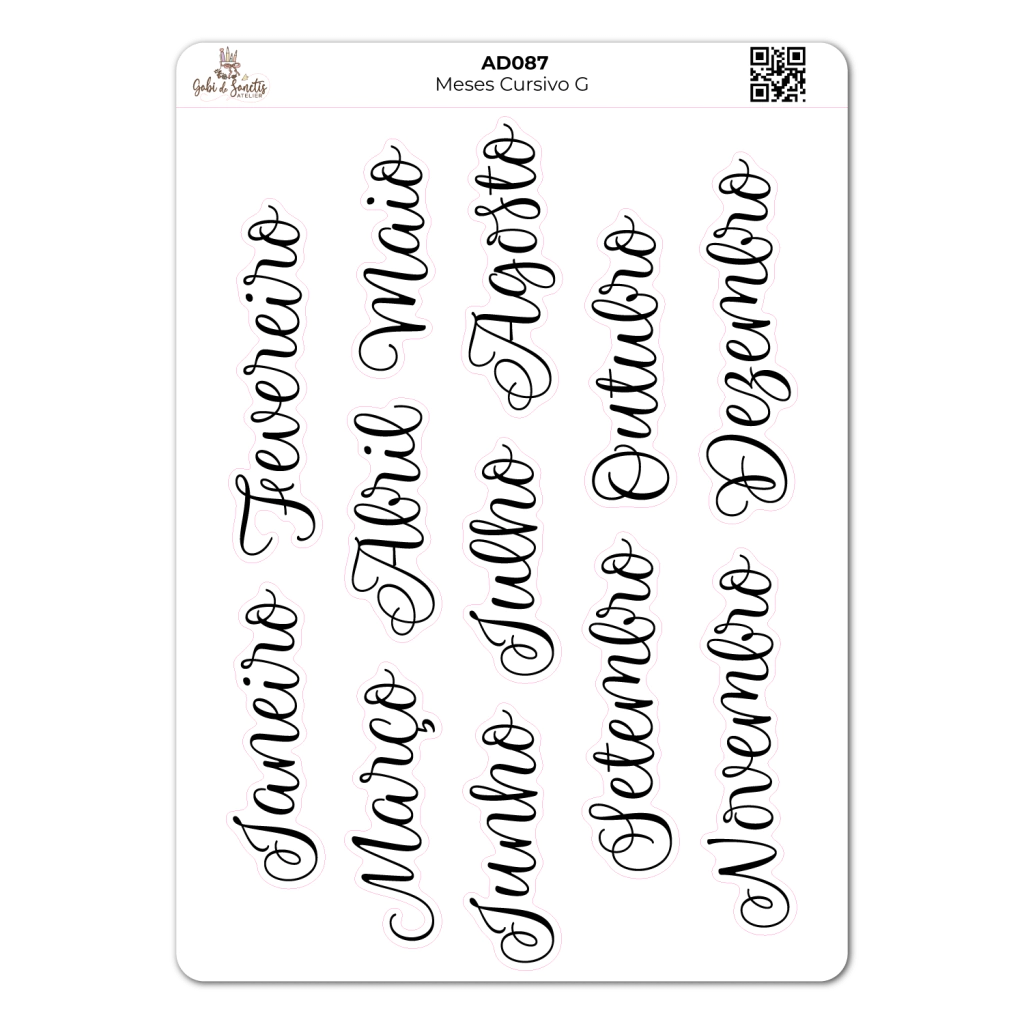 Gabi de Sanctis
ATELIER
AD087
Meses Cursivo G
Janeiro
Fevereiro
Março
Abril
Maio
Junho
Julho
Agosto
Setembro
Outubro
Novembro
Dezembro